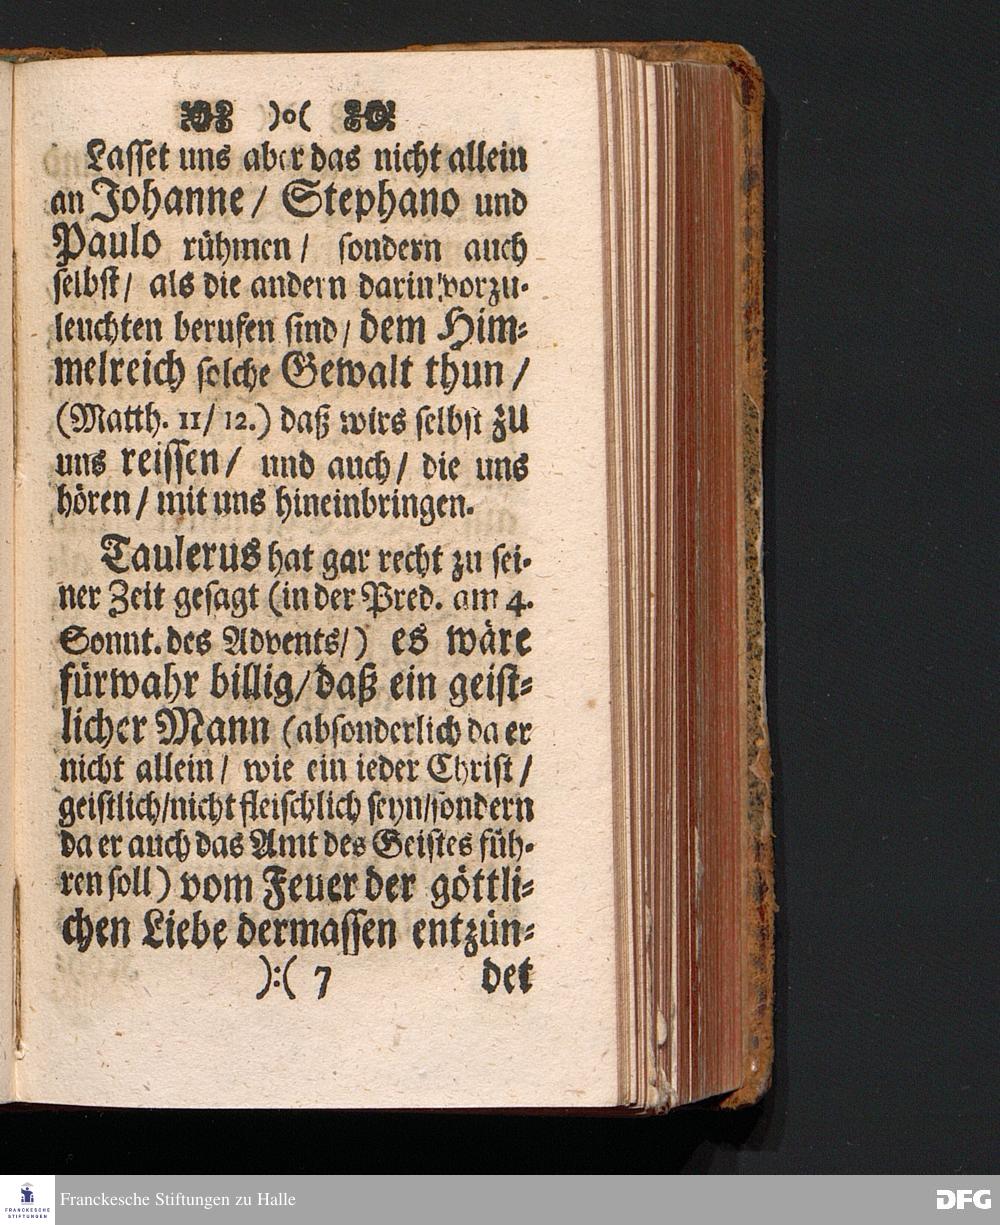 )o(
Lasset uns aber das nicht allein
an Johanne / Stephano und
Paulo rühmen / sondern auch
selbst / als die andern darin vorzu-
leuchten berufen sind / dem Him-
melreich solche Gewalt thun /
(Matth. 11/ 12.) daß wirs selbst zu
uns reissen / und auch / die uns
hören / mit uns hineinbringen.
Taulerus hat gar recht zu sei-
ner Zeit gesagt (in der Pred. am 4.
Sonnt. des Advents/) es wäre
fürwahr billig/ daß ein geist-
licher Mann (absonderlich da er
nicht allein / wie ein ieder Christ /
geistlich/nicht fleischlich seyn/sondern
da er auch das Amt des Geistes füh-
ren soll) vom Feuer der göttli-
chen Liebe dermassen entzün-
):( 7 det
FRANCKESCHE
STIFTUNGEN
Franckesche Stiftungen zu Halle
DFG